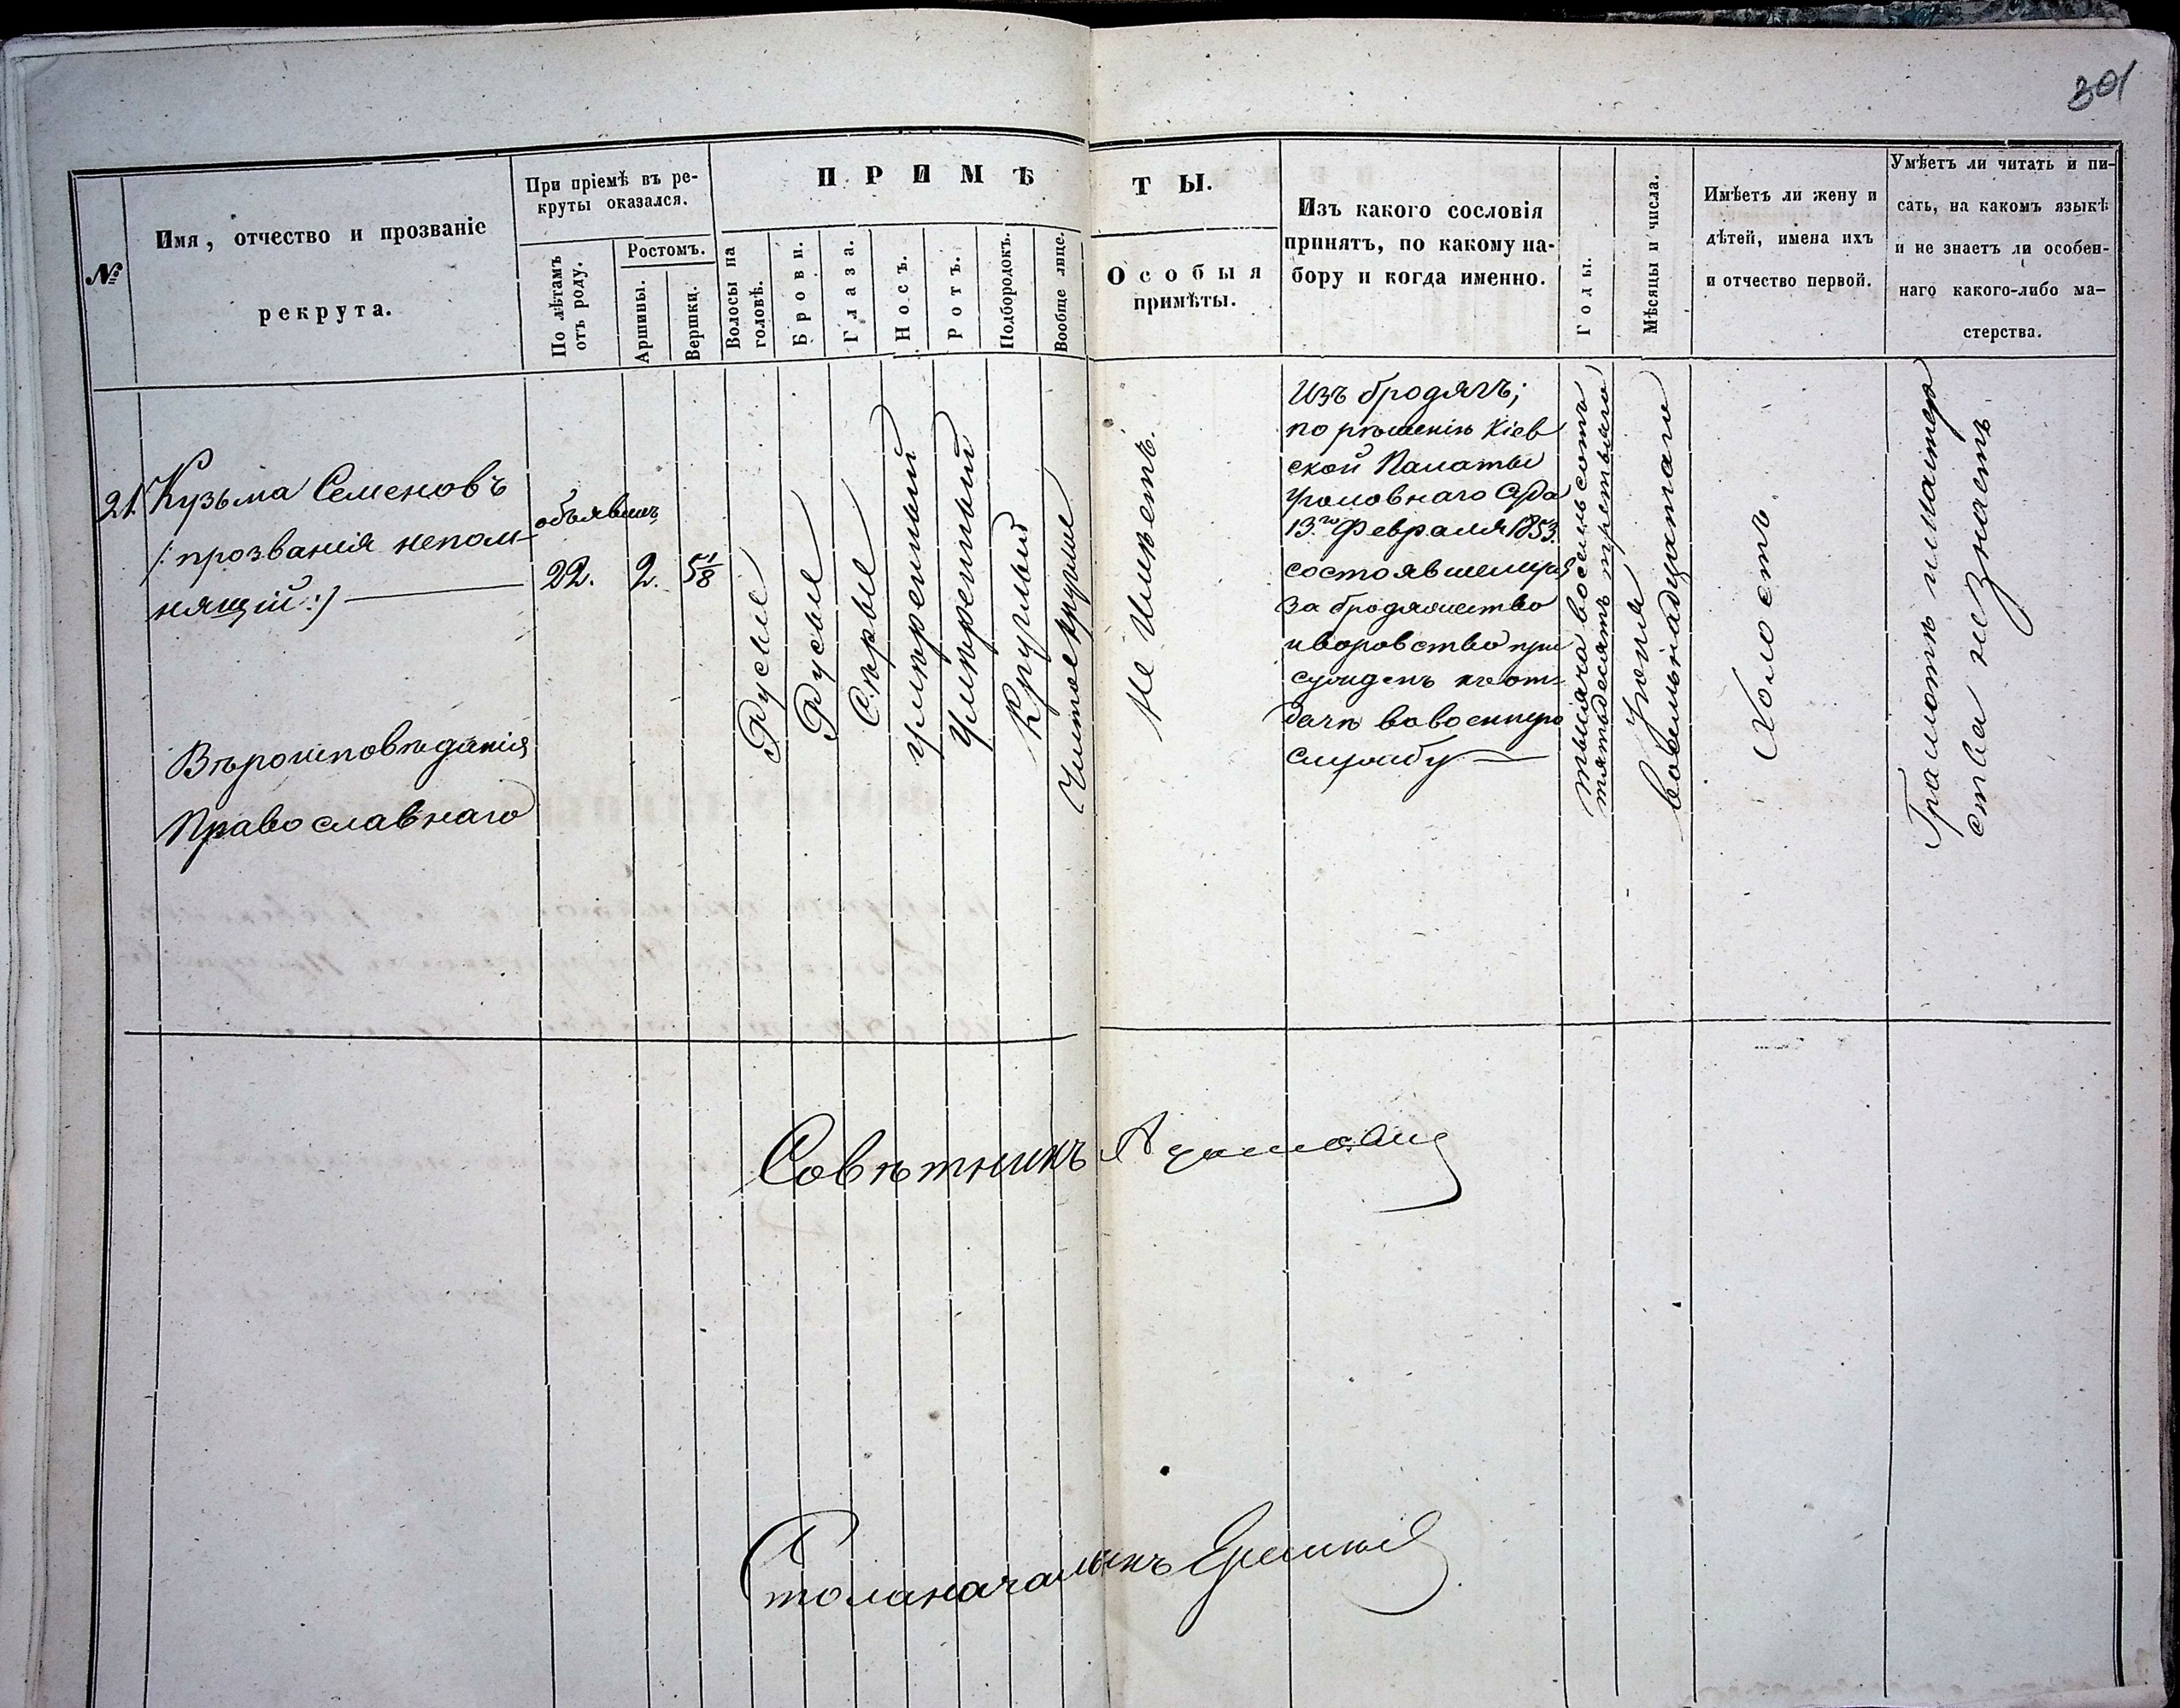 301
№
Имя, отчество и прозваніе
рекрута.
При пріемѣ въ ре-
круты оказался.
По лѣтамъ
отъ роду.
Ростомъ.
Аршины.
Вершки.
ПРИМѢТЫ.
Волосы на
головѣ.
Брови.
Глаза.
Носъ.
Ротъ.
Подбородокъ.
Вообще лице.
Особыя
примѣты.
Изъ какого сословія
принятъ, по какому на-
бору и когда именно.
Годы.
Мѣсяцы и числа.
Имѣетъ ли жену и
дѣтей, имена ихъ
и отчество первой.
Умѣетъ ли читать и пи-
сать, на какомъ языкѣ
и не знаетъ ли особен-
наго какого-либо ма-
стерства.
21.
Кузьма Семеновъ
/:прозванія непом-
нящій:/
Вѣроисповѣданія
Православнаго
объявилъ
22.
2.
5 1/8
Русые
Русые
Сѣрые
Умѣренный
Умѣренный
Круглый
Чистое круглое
Не Имѣетъ.
Изъ бродягъ;
по рѣшенію Кіев
ской Палаты
Уголовнаго Суда
13.го Февраля 1853.
состоявшемуся
за бродяжество
и воровство при
сужденъ къ от-
дачѣ въ военную
службу
тысяча восемьсотъ
пятьдесятъ третьяго
Іюня
восемьнадцатаго
Холостъ.
Грамотѣ и мастер
ства не знаетъ.
Совѣтникъ
Столаначальникъ